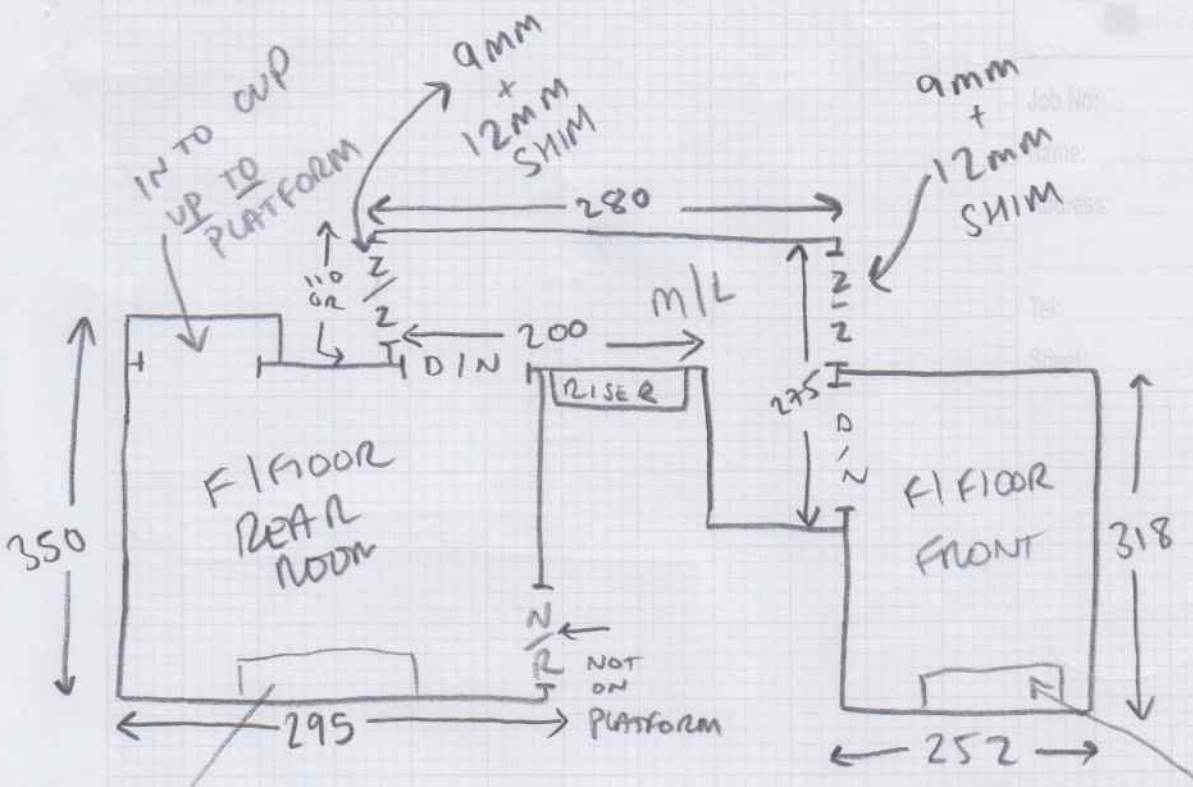 IN TO CUP
UP TO
PLATFORM
9MM
+
12MM
SHIM
9MM
+
12MM
SHIM
Job No:
Name:
Address:
Tel:
Sheet:
280
110
OR
Z/Z
Z/Z
200
M/L
D/N
RISER
275
D/N
350
F/FLOOR
REAR
ROOM
F/FLOOR
FRONT
318
N/R
NOT
ON
PLATFORM
295
252